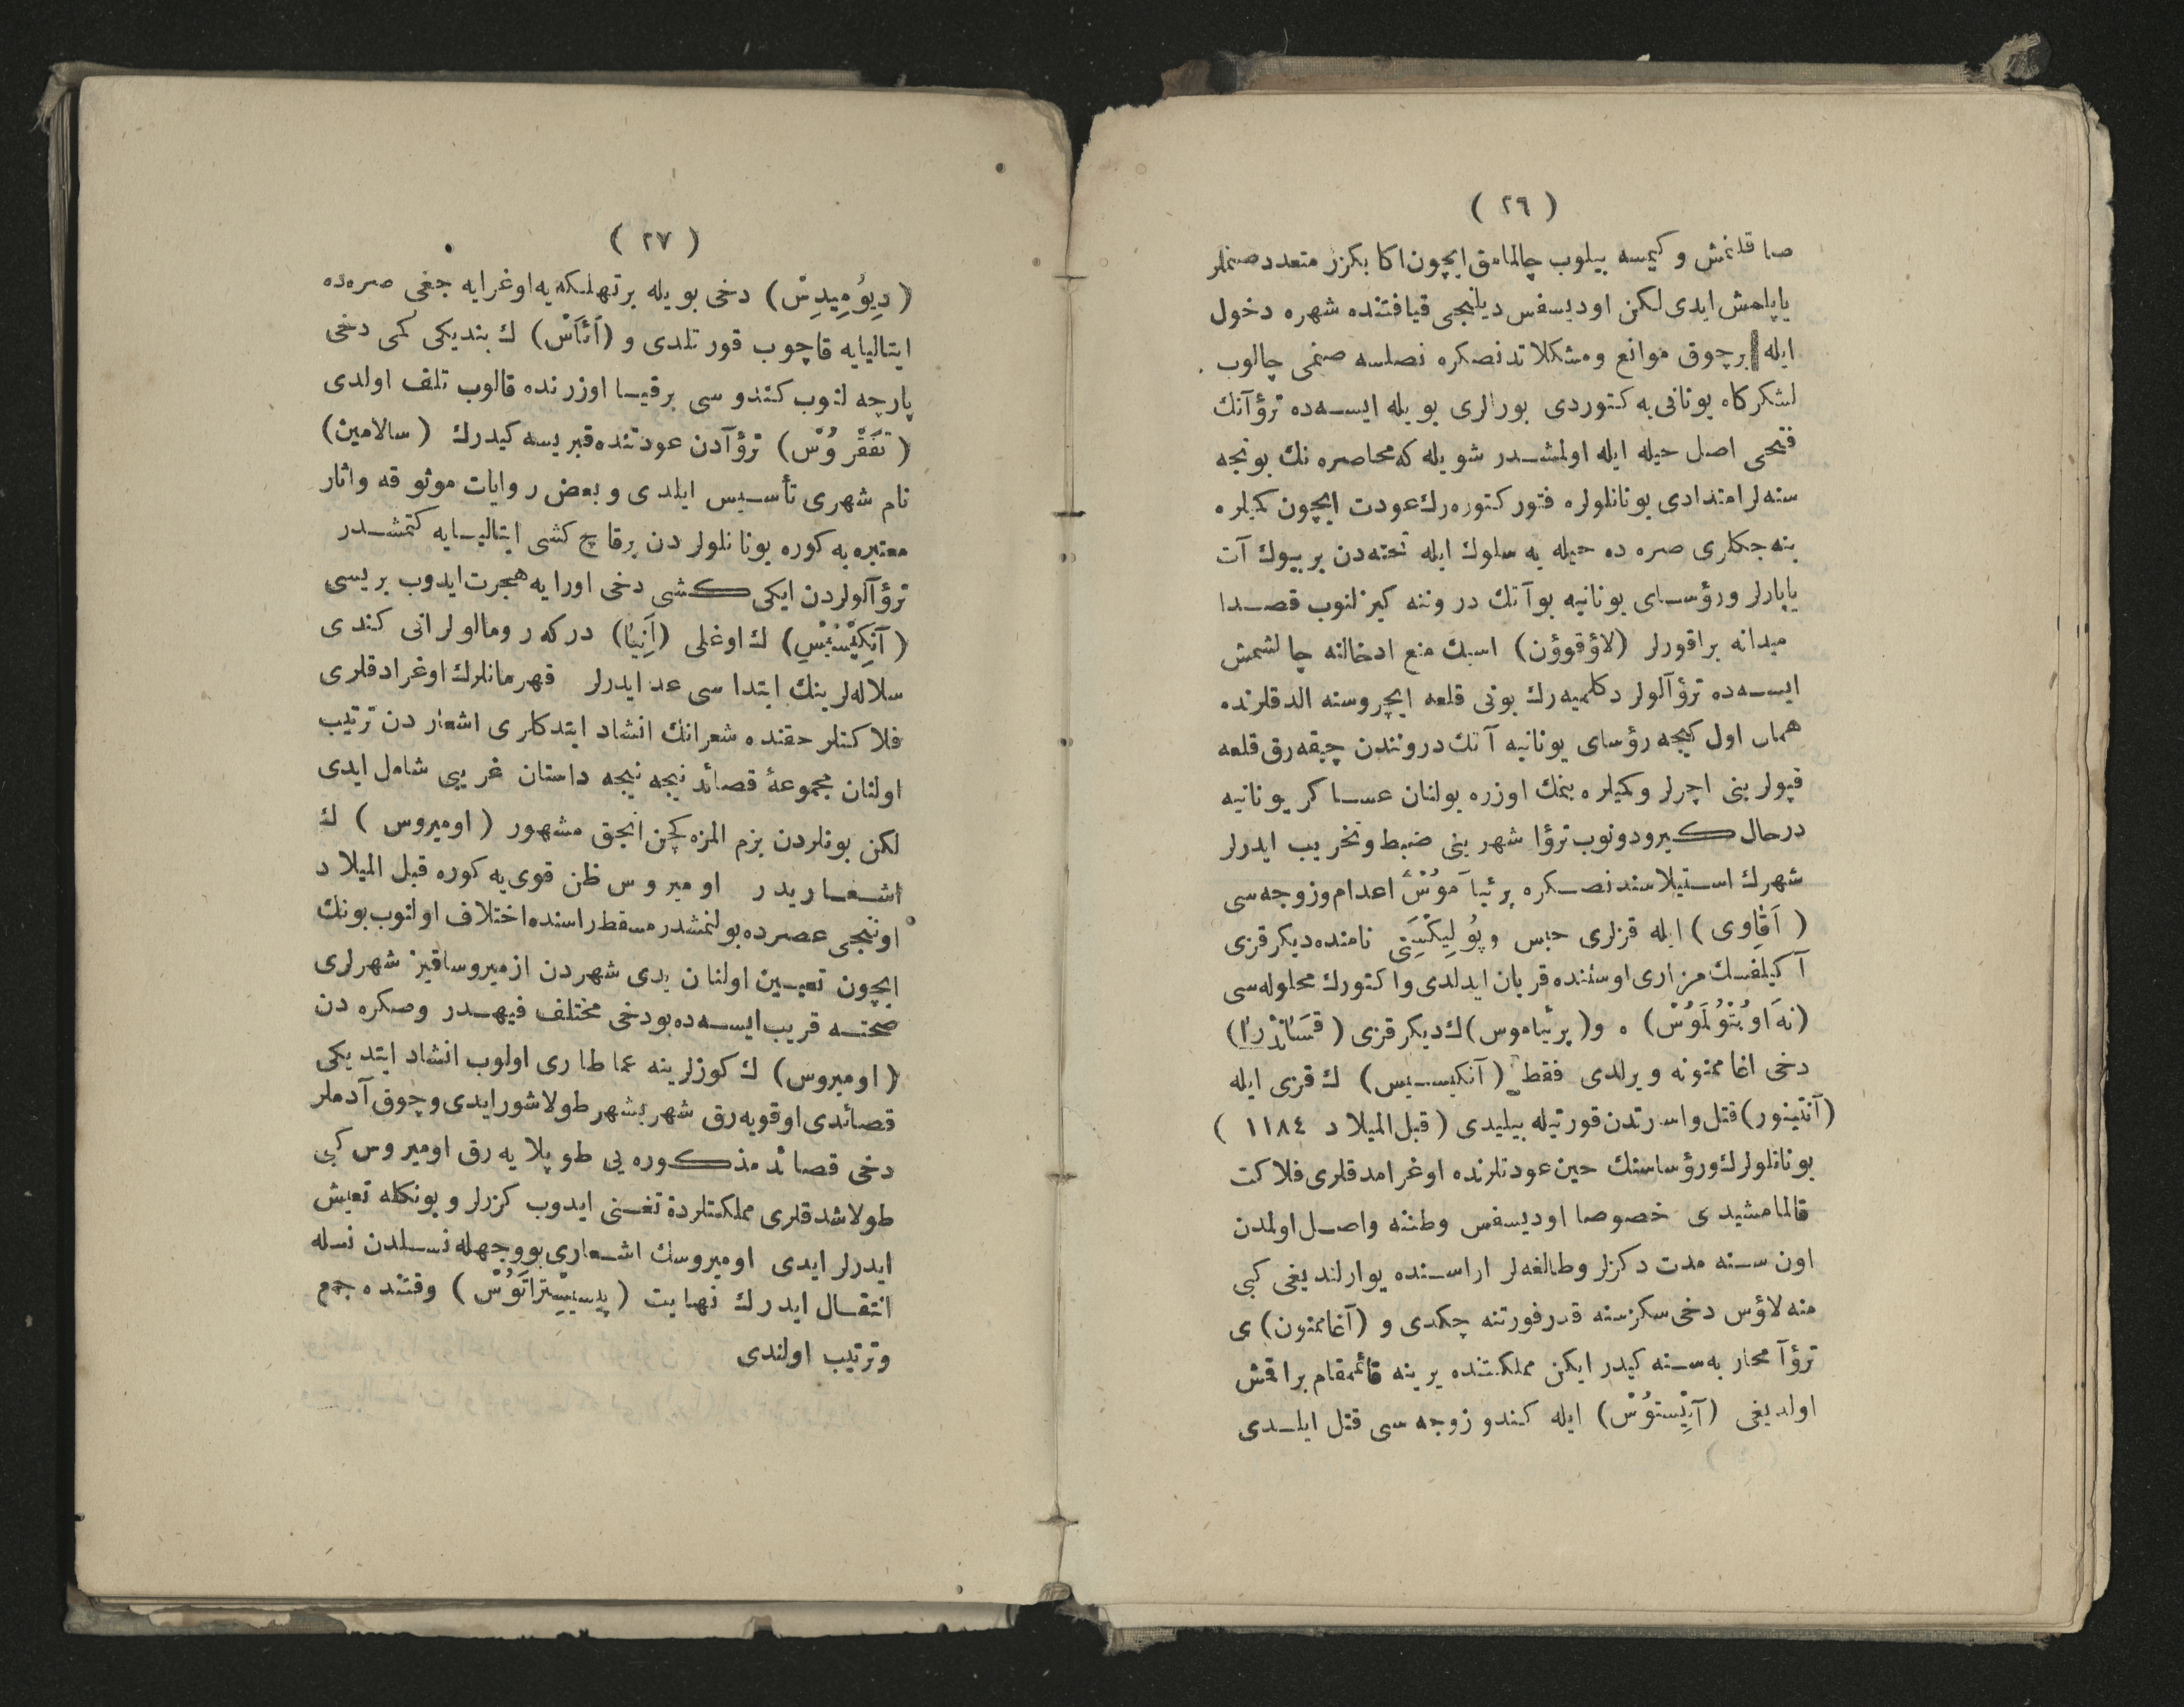 ( ٢٦ )
صاقلنمش و كیمسه بیلوب چالمامق ایچون اكا بكزر متعدد صنملر
یاپلمش ایدی لكن اودیسفس دیلنجی قیافتنده شهره دخول
ایله برچوق موانع ومشكلاتدنصكره نصلسه صنمی چالوب .
لشكركاه یونانی‌یه كتوردی بورالری بویله ایسه‌ده ترؤآنك
فتحی اصل حیله ایله اولمشدر شویله كه محاصره نك بونجه
سنه‌لر امتدادی یونانلولره فتور كتوره‌رك عودت ایچون كمیلره
بنه‌جكلری صره ده حیله یه سلوك ایله تخته‌دن بر بیوك آت
یاپارلر ورؤسای یونانیه بوآتك دروننه كیزلنوب قصدا
میدانه براقورلر (لاؤقوؤن) اسبك منع ادخالنه چالشمش
ایسه‌ده ترؤآلولر دكلمیه‌رك بونی قلعه ایچروسنه الدقلرنده
همان اول كیجه رؤسای یونانیه آتك دروندن چیقه‌رق قلعه
قپولرینی اچرلر وكمیلره بنمك اوزره بولنان عساكر یونانیه
درحال كیرودونوب ترؤا شهرینی ضبط وتخریب ایدرلر
شهرك استیلاسندنصكره پرئیآموُسْ اعدام وزوجه‌سی
( اَقاوی ) ایله قزلری حبس وپُولِیكْسَِنی نامنده دیكر قزی
آكیلفسك مزاری اوستنده قربان ایدلدی واكتورك محلوله‌سی
(نَه‌اوُپْتُولَموُسْ) ه و(پرئیاموس)ك دیكر قزی ( قَسَانْدرَا )
دخی اغاممنونه ویرلدی فقط (آنكیسیس) ك قزی ایله
(آنتینور) قتل واسرتدن قورتیله بیلیدی (قبل المیلاد ١١٨٤ )
یونانلولرك ورؤساسنك حین عودتلرنده اوغرامدقلری فلاكت
قالمامشیدی خصوصا اودیسفس وطننه واصل اولمدن
اون سنه مدت دكزلر وطالغه‌لر اراسنده یوارلندیغی كبی
منه‌لاؤس دخی سكزسنه قدر فورتنه چكدی و (آغاممنون) ی
ترؤآ محاربه‌سنه كیدر ایكن مملكتنده یرینه قائممقام براقمش
اولدیغی (آیِیْستُوْسْ) ایله كندو زوجه سی قتل ایلدی
( ٢٧ )
(دِیوُمِیدِسْ) دخی بویله برتهلكه‌یه اوغرایه جغی صره‌ده
ایتالیایه قاچوب قورتلدی و (اَئآسْ) ك بندیكی كمی دخی
پارچه لنوب كندوسی برقیا اوزرنده قالوب تلف اولدی
(تَفَقْروُسْ) ترؤآدن عودتنده قبریسه كیدرك (سالامین)
نام شهری تأسیس ایلدی وبعض روایات موثوقه واثار
معتبره‌یه كوره یونانلولردن برقاچ كشی ایتالیایه كتمشدر
ترؤآلولردن ایكی كشی دخی اورایه هجرت ایدوب بریسی
(آنِكِیْسِیْسِ) ك اوغلی (اَنِیَا) دركه رومالولر انی كندی
سلاله‌لرینك ابتداسی عد ایدرلر قهرمانلرك اوغرادقلری
فلاكتلر حقنده شعرانك انشاد ایتدكلری اشعاردن ترتیب
اولنان مجموعهٔ قصائد نیجه نیجه داستان غریبی شامل ایدی
لكن بونلردن بزم المزه كچن انجق مشهور (اومیروس) ك
اشعاریدر اومیروس ظن قوی‌یه كوره قبل المیلاد
اوننجی عصرده بولنمشدر مسقط راسنده اختلاف اولنوب بونك
ایچون تعیین اولنان یدی شهردن ازمیر وساقیز شهرلری
صحته قریب ایسه‌ده بودخی مختلف فیهدر وصكره دن
(اومیروس) ك كوزلرینه عما طاری اولوب انشاد ایتدیكی
قصائدی اوقویه‌رق شهر بشهر طولاشور ایدی وچوق آدملر
دخی قصائد مذكوره یی طوپلایه رق اومیروس كبی
طولاشدقلری مملكتلردة تغنی ایدوب كزرلر وبونكله تعیش
ایدرلر ایدی اومیروسك اشعاری بووجهله نسلدن نسله
انتقال ایدرك نهایت (پِسِیسْتِراتَوُسْ) وقتنده جمع
وترتیب اولندی